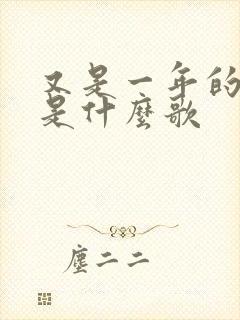 又是一年的
是什麼歌
塵二二